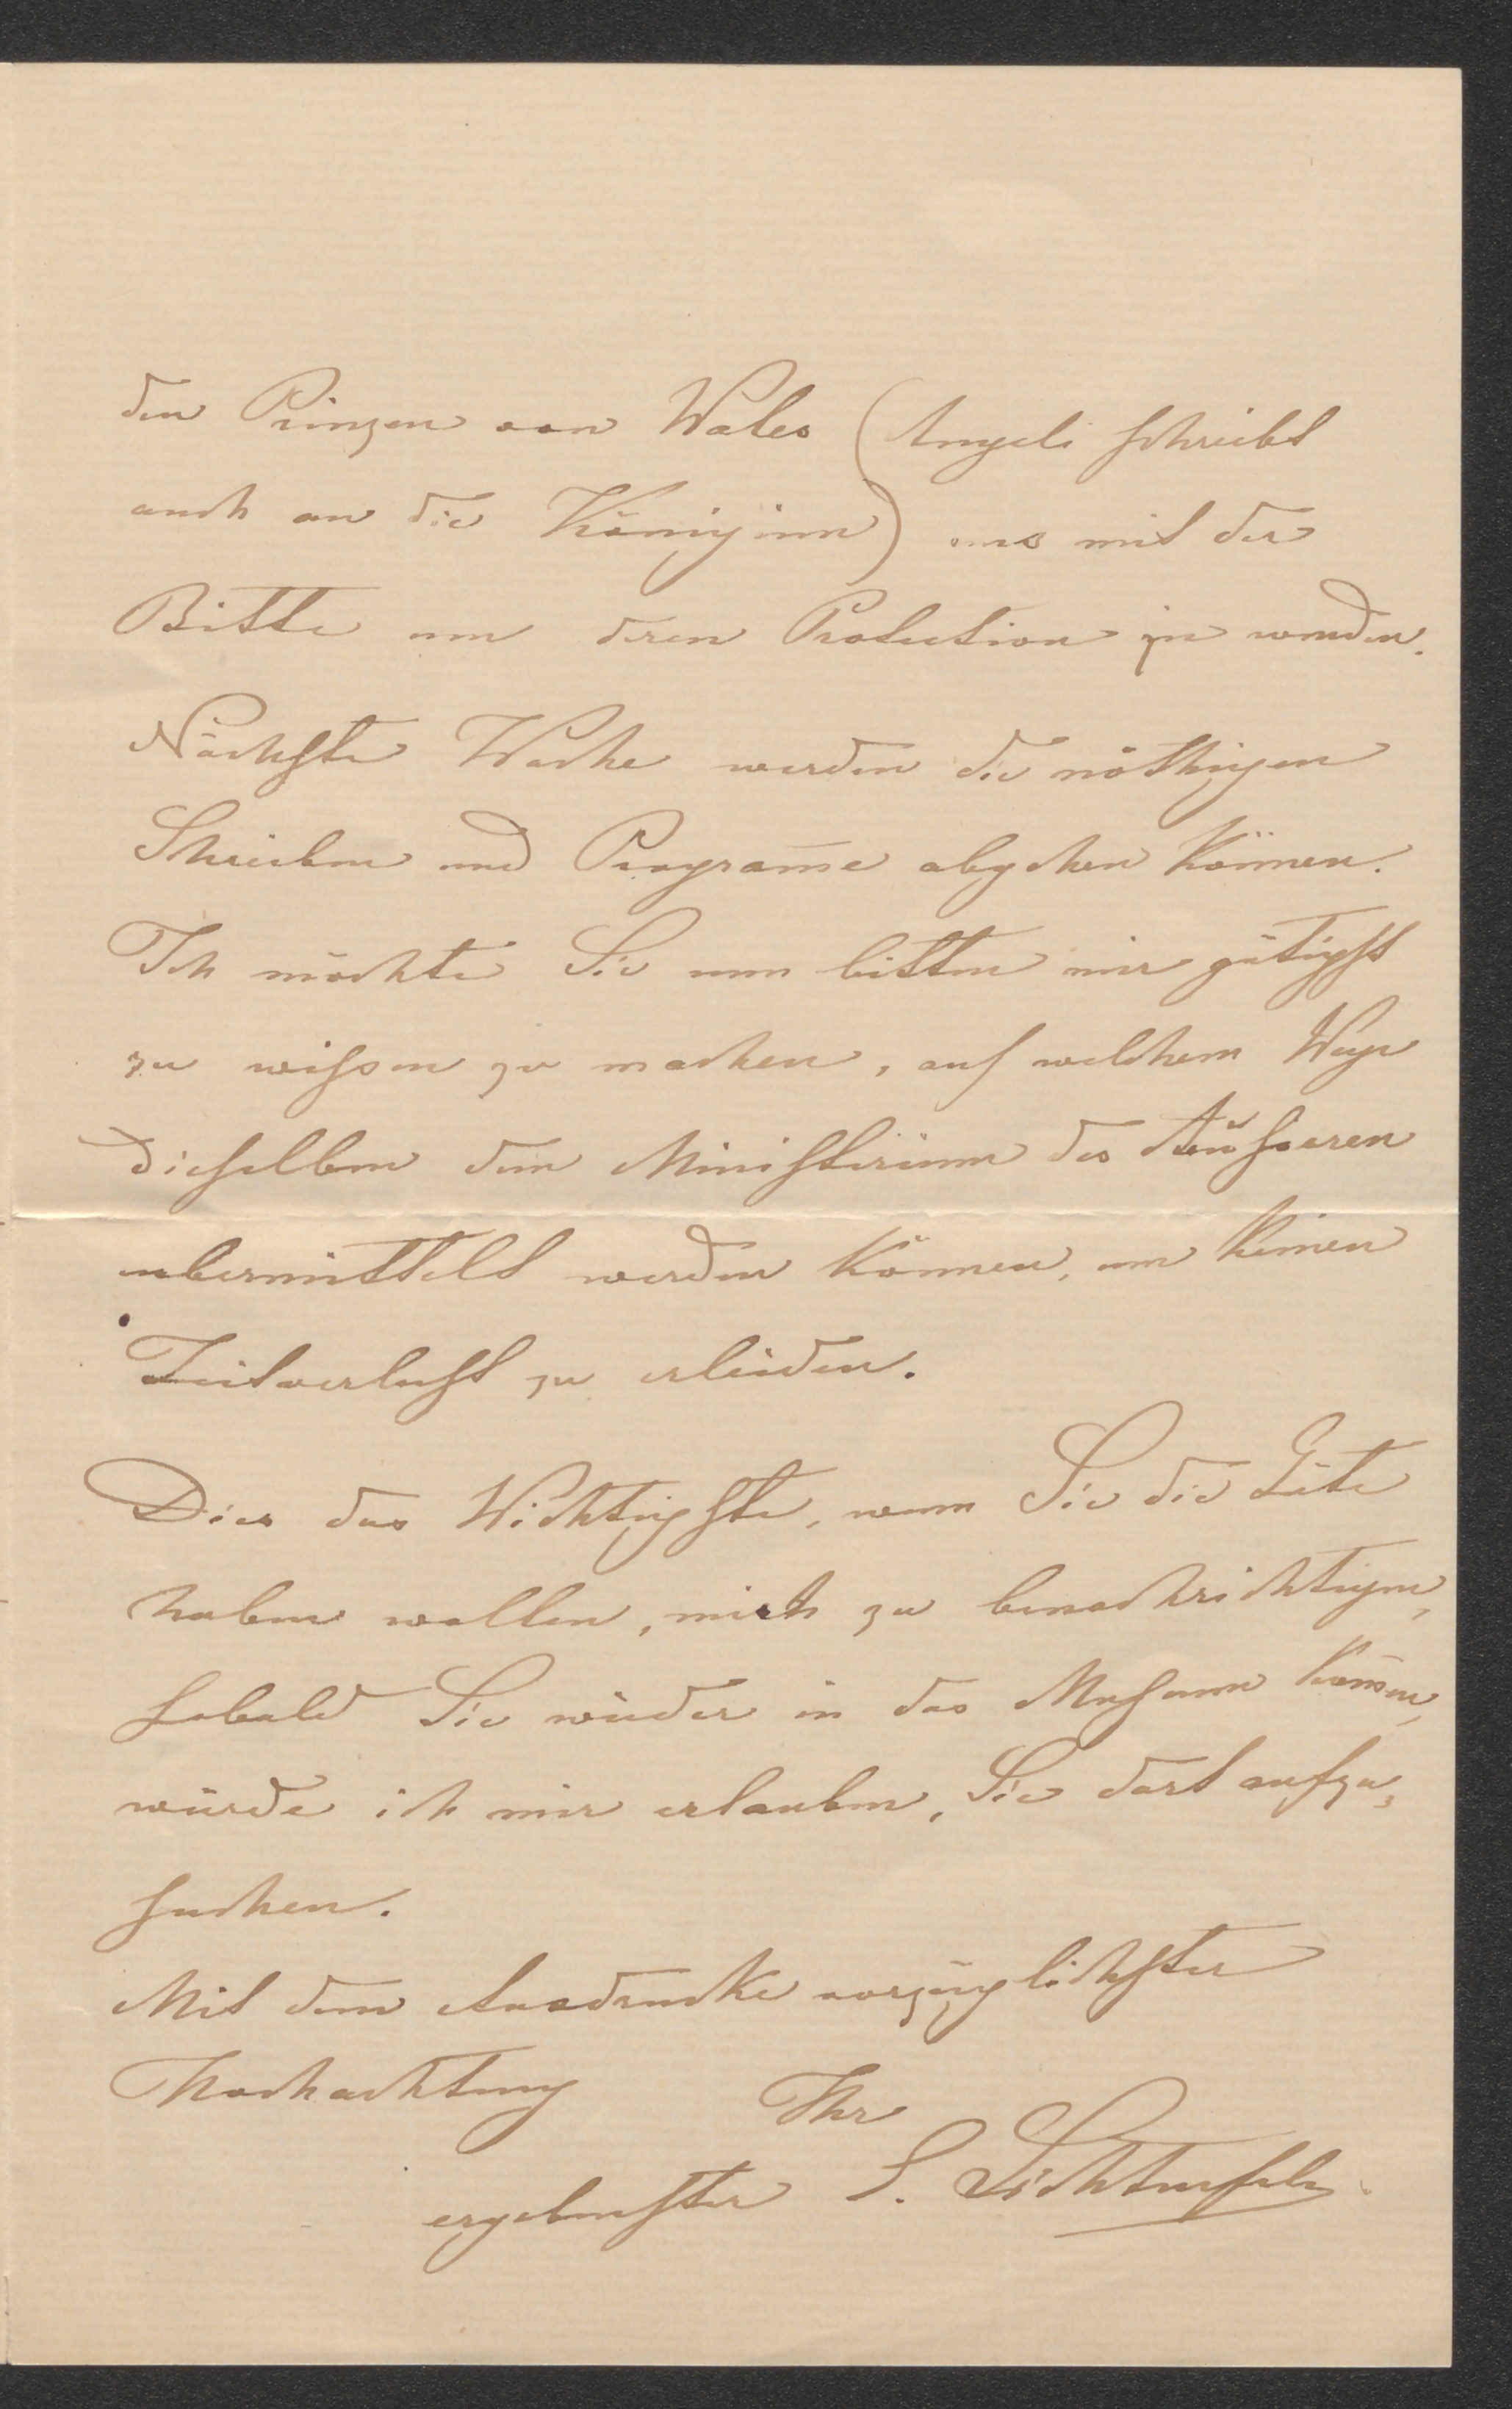 den Prinzen von Wales (Angeli schreibt
auch an die Königinn) uns mit der
Bitte um deren Protection zu wenden.
Nächste Woche werden die nöthigen
Schreiben und Programme abgehen können.
Ich möchte Sie nun bitten mir gütigst
zu wissen zu machen, auf welchem Wege
dieselben dem Ministerium des Äusseren
übermittelt werden können, um keinen
Zeitverlust zu erleiden.
Dies das Wichtigste, wenn Sie die Güte
haben wollen, mich zu benachrichtigen,
sobald Sie wieder in das Museum kommen,
würde ich mir erlauben, Sie dort aufzu-
suchen.
Mit dem Ausdrucke vorzüglichster
Hochachtung Ihr
ergebenster E. Lichtenfels